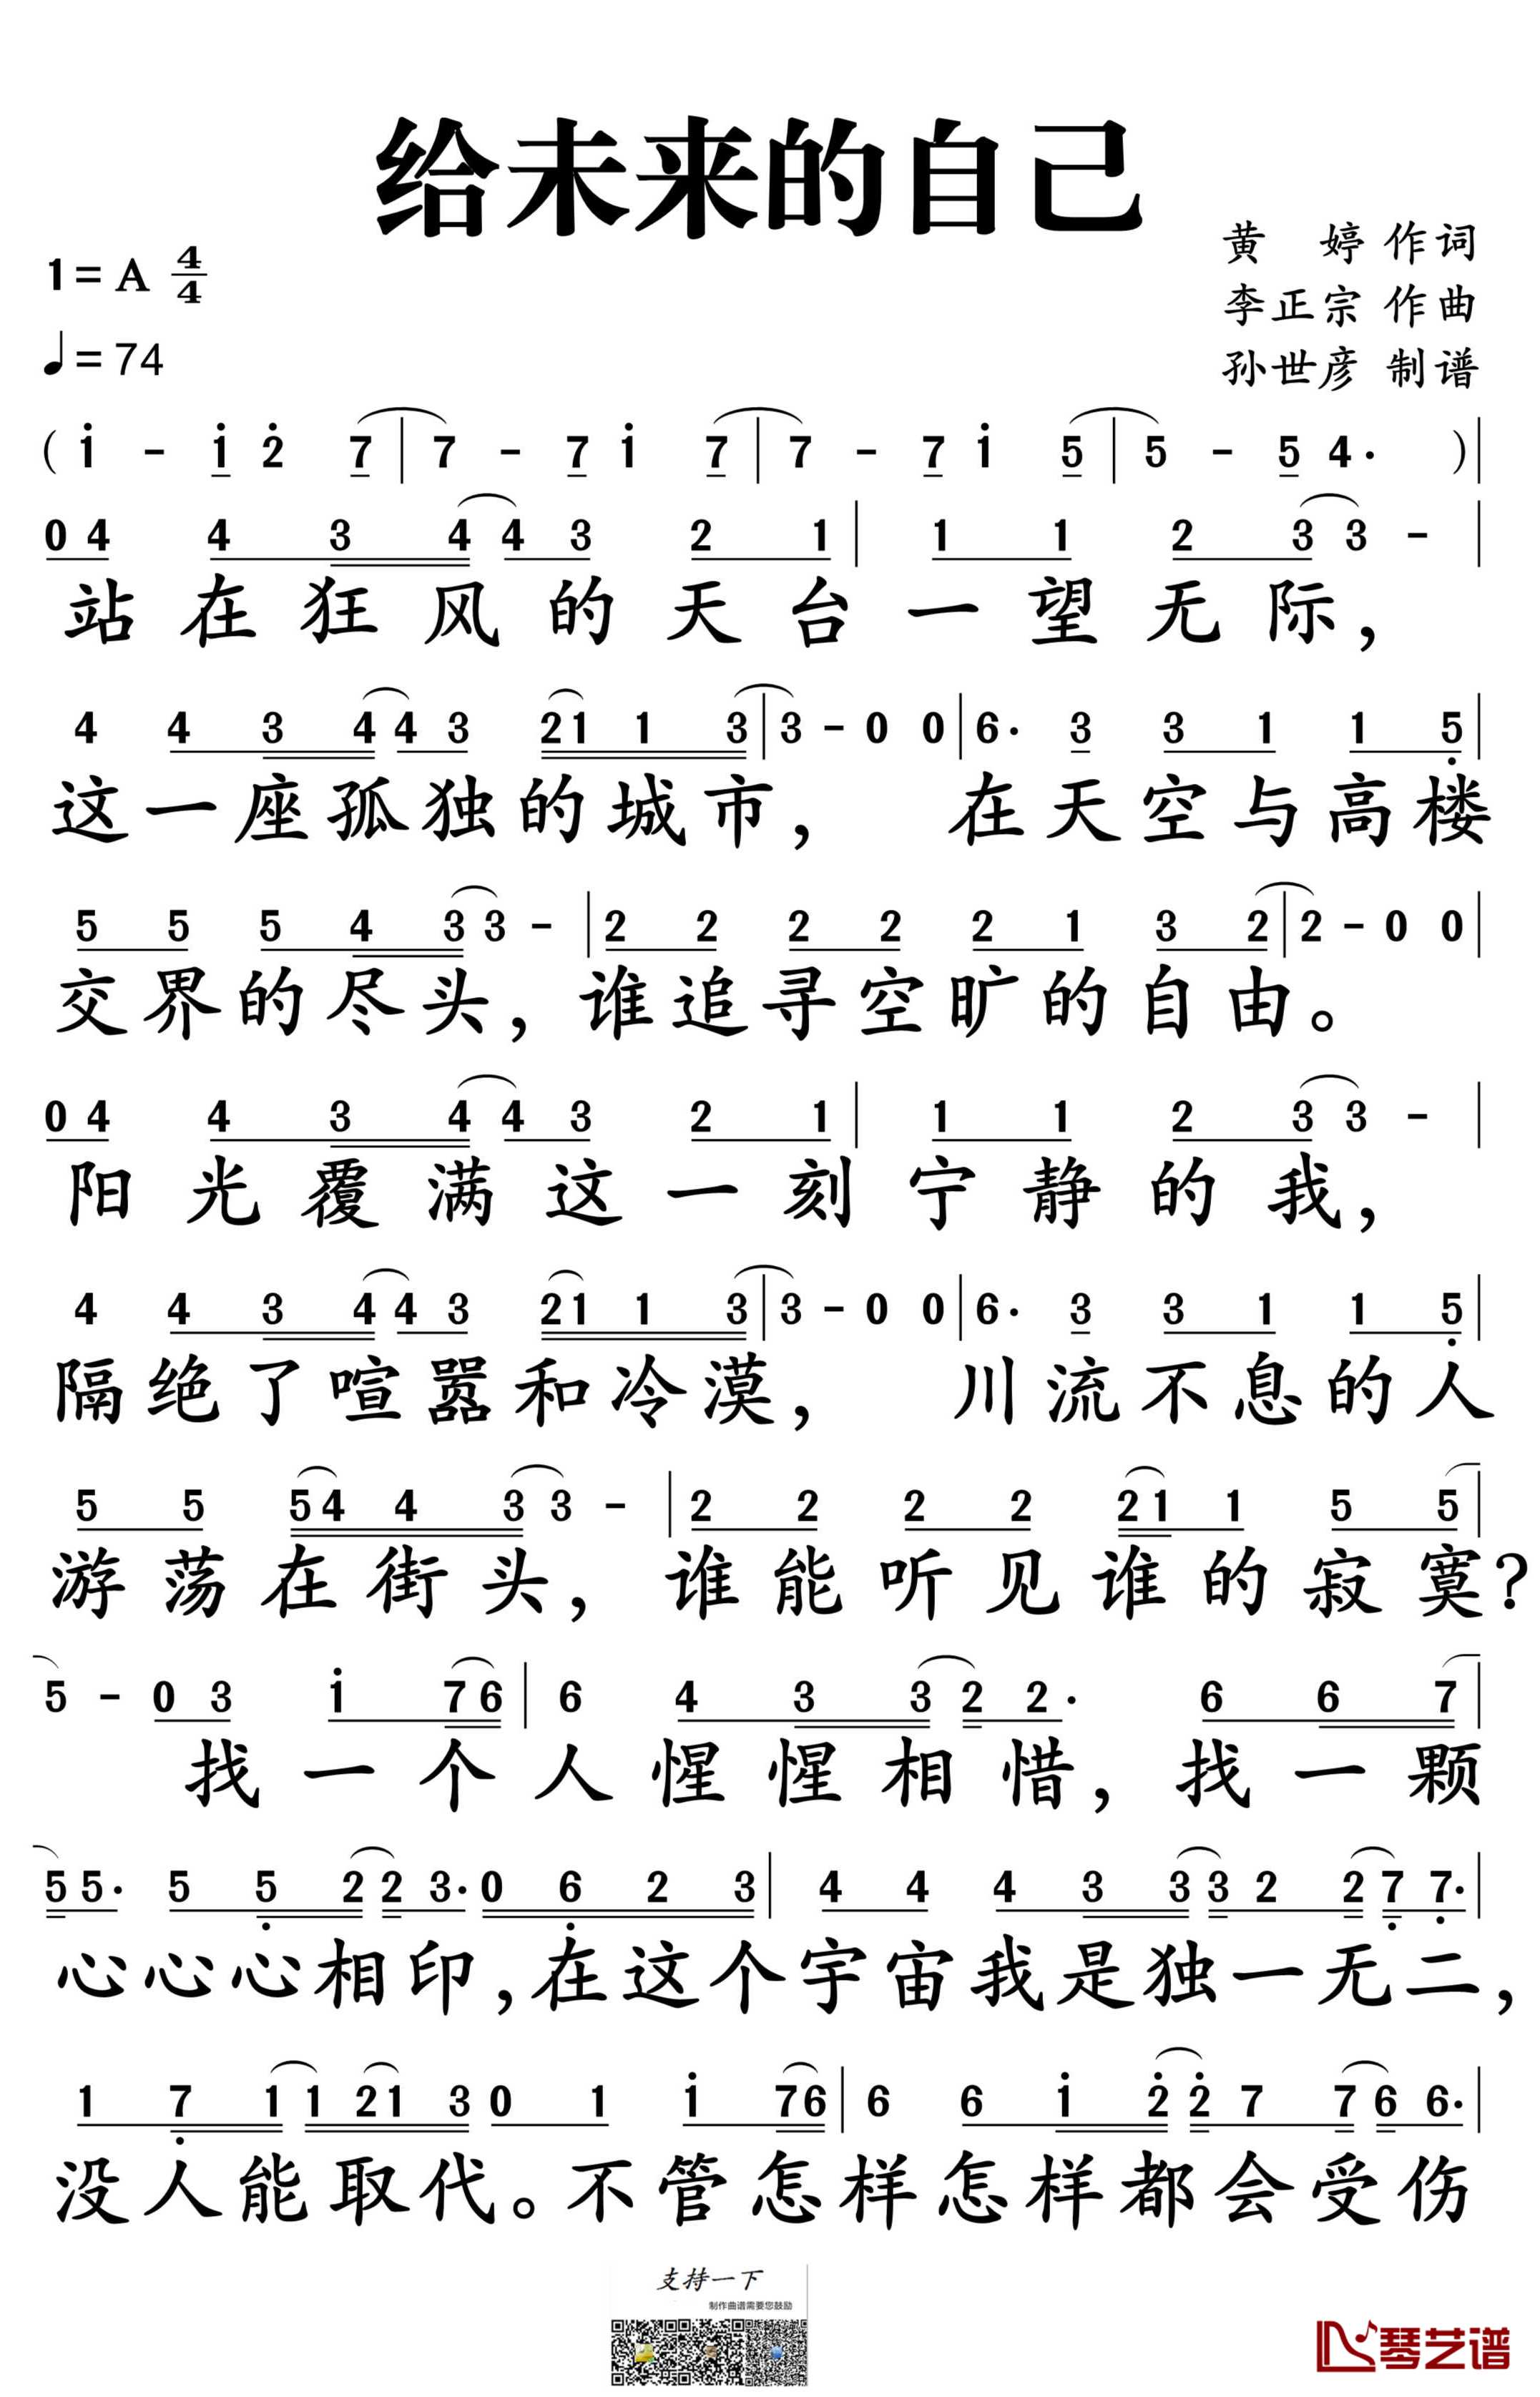 给未来的自己
1=A 4/4
黄 婷 作词
李正宗 作曲
♩=74
孙世彦 制谱
( i - i 2 7 | 7 - 7 i 7 | 7 - 7 i 5 | 5 - 5 4· ) |
0 4 4 3 4 4 3 2 1 | 1 1 2 3 3 - |
站在狂风的天台一望无际，
4 4 3 4 4 3 2 1 1 3 | 3 - 0 0 | 6· 3 3 1 1 5 |
这一座孤独的城市， 在天空与高楼
5 5 5 4 3 3 - | 2 2 2 2 2 1 3 2 | 2 - 0 0 |
交界的尽头，谁追寻空旷的自由。
0 4 4 3 4 4 3 2 1 | 1 1 2 3 3 - |
阳光覆满这一刻宁静的我，
4 4 3 4 4 3 2 1 1 3 | 3 - 0 0 | 6· 3 3 1 1 5 |
隔绝了喧嚣和冷漠， 川流不息的人
5 5 5 4 4 3 3 - | 2 2 2 2 2 1 1 5 5 |
游荡在街头，谁能听见谁的寂寞？
5 - 0 3 i 7 6 | 6 4 3 3 2 2· 6 6 7 |
找一个人惺惺相惜，找一颗
5 5· 5 5 2 2 3· 0 6 2 3 | 4 4 4 3 3 3 2 2 7 7· |
心心心相印，在这个宇宙我是独一无二，
1 7 1 1 2 1 3 0 1 i 7 6 | 6 6 i 2 2 7 7 6 6· |
没人能取代。不管怎样怎样都会受伤
支持一下
制作曲谱需要您鼓励
琴艺谱